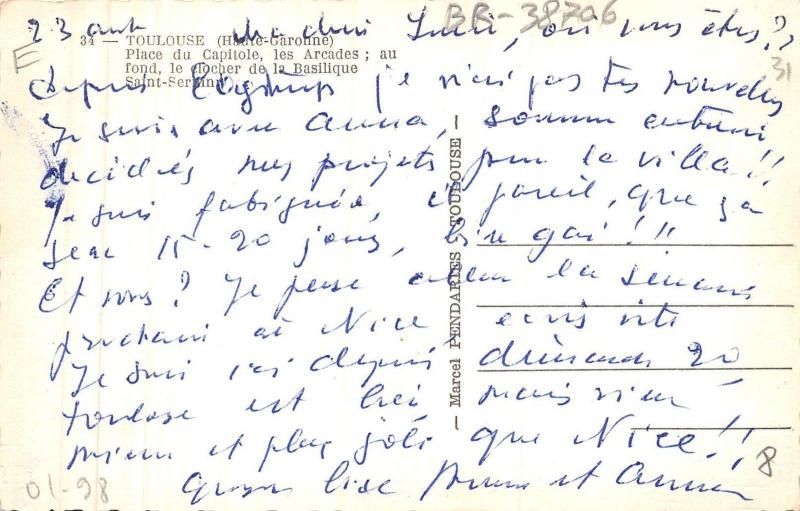 BR-38706
23 aout
Ma chère Luci, où vous êtes??
34 — TOULOUSE (Haute-Garonne)
Place du Capitole, les Arcades ; au
fond, le clocher de la Basilique
Saint-Sernin
E
31
depuis je n'ai pas tes nouvelles
Je suis avec Anna, somme
décidés nos projets pour la villa!!
Je suis fatiguée, c' pareil, que ça
sera 15-20 jours, bien gai!!!
Et vous? Je pense aller la semaine
prochain à Nice écris vite
Je suis ici depuis dimanche 20,
Toulouse est mais rien
mieux et plus joli que Nice!!
8
01-98
et Anna
— Marcel PENDARIES — TOULOUSE —